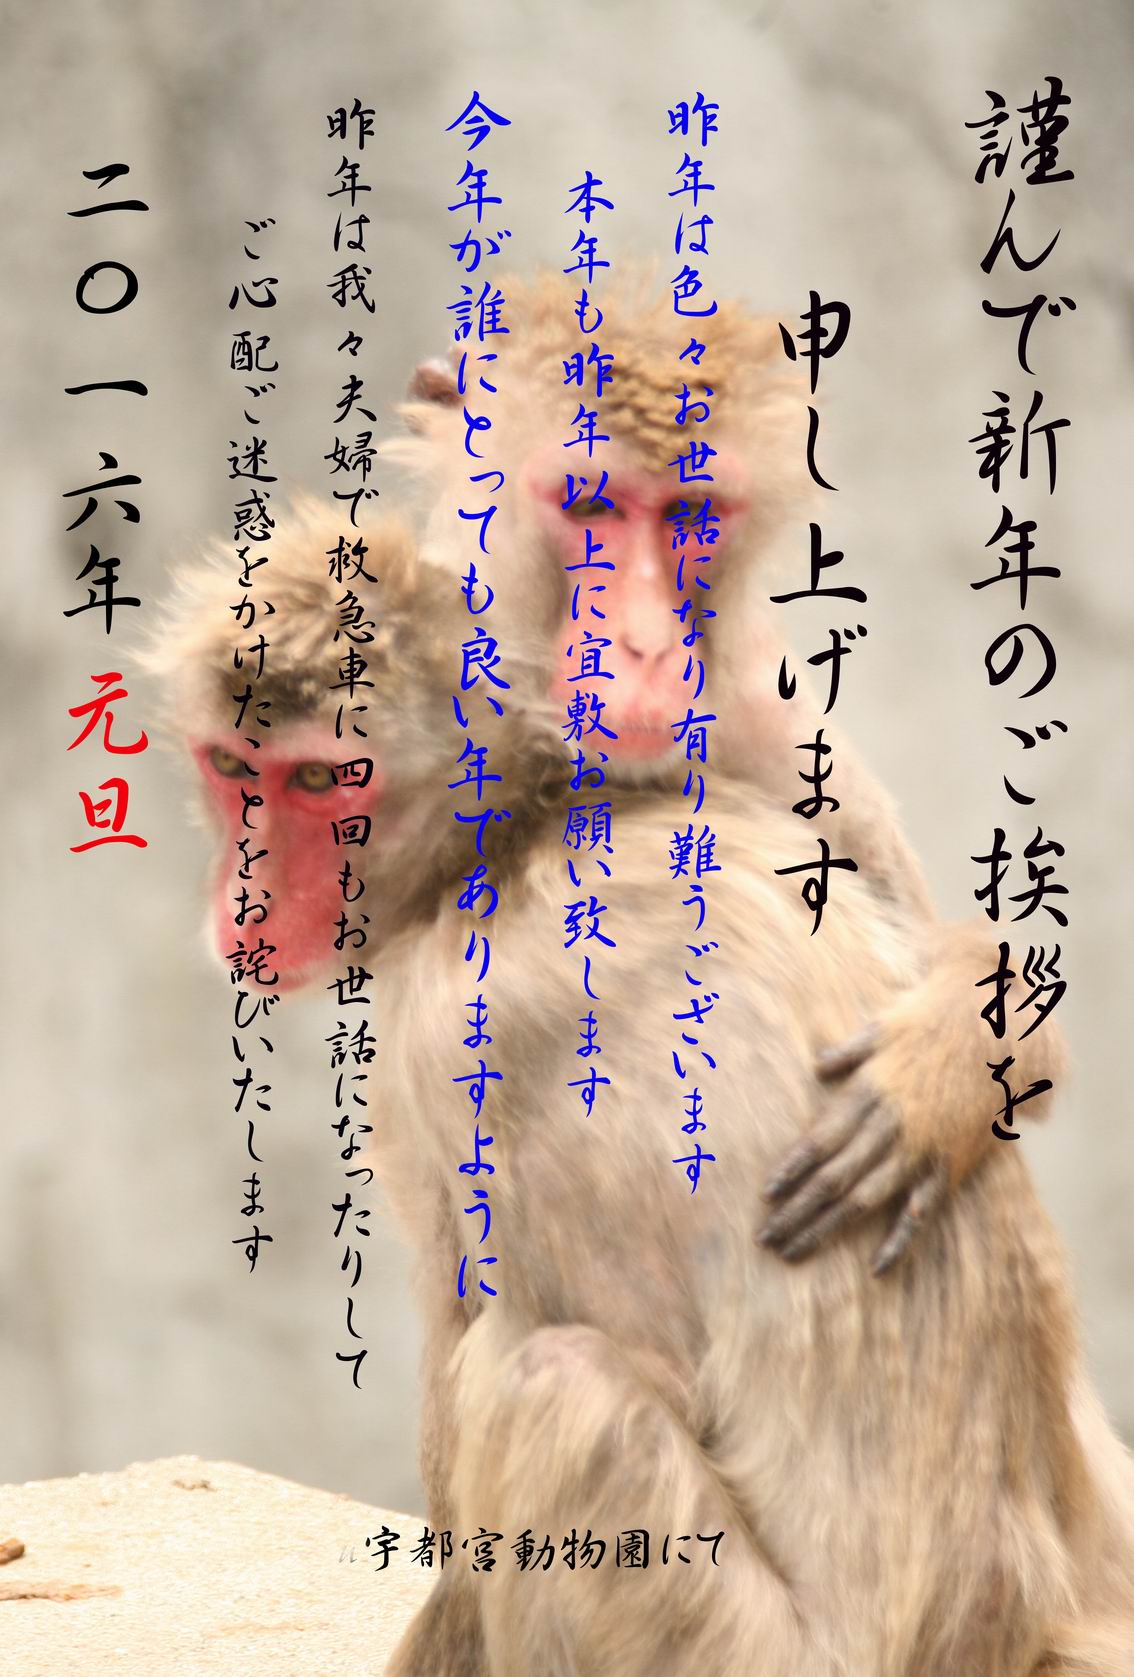 謹んで新年のご挨拶を
申し上げます
昨年は色々お世話になり有り難うございます
本年も昨年以上に宜敷お願い致します
今年が誰にとっても良い年でありますように
昨年は我々夫婦で救急車に四回もお世話になったりして
ご心配ご迷惑をかけたことをお詫びいたします
二〇一六年 元旦
宇都宮動物園にて